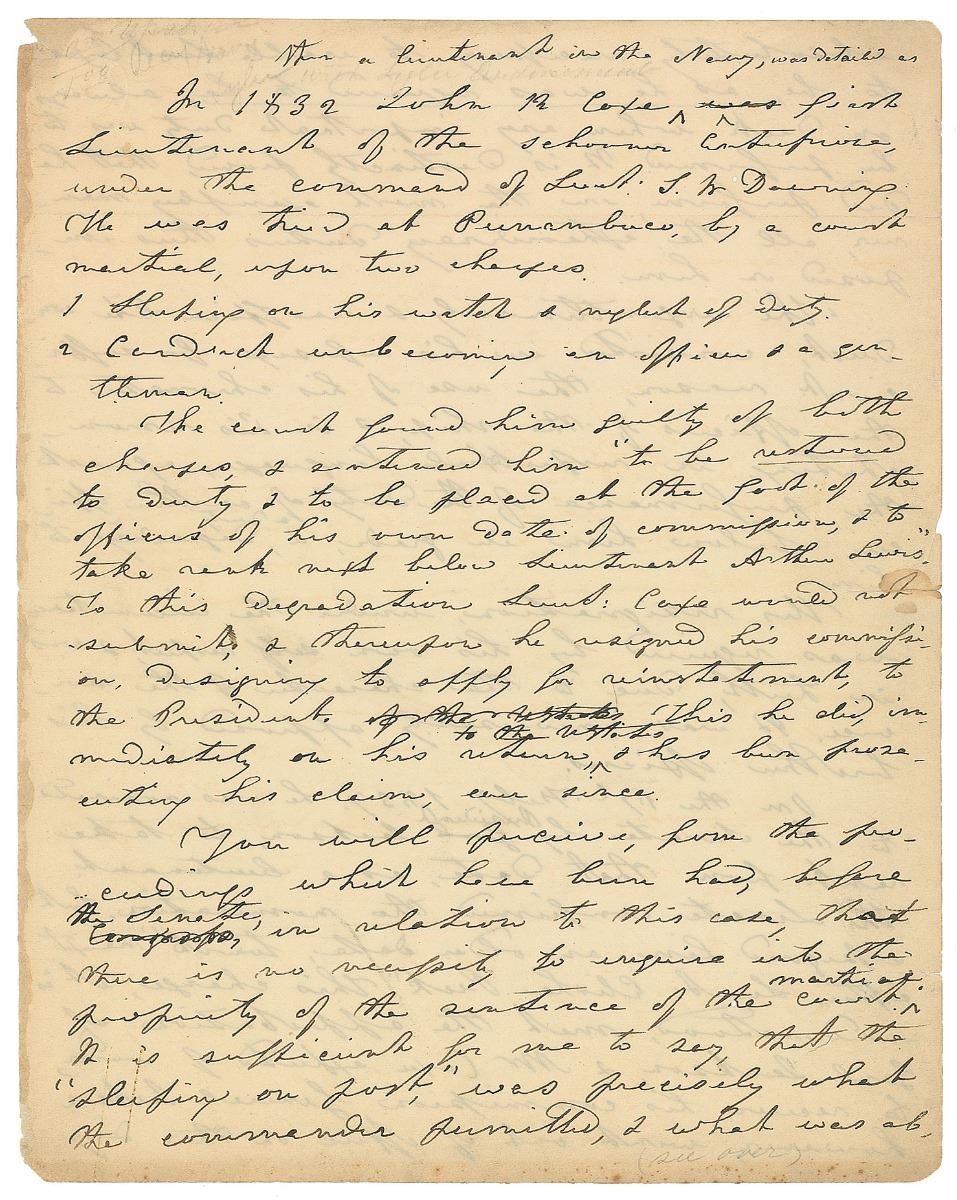 then a lieutenant in the Navy, was detailed as
In 1832 John R Coxe ^ was ^ first
Lieutenant of the schooner Enterprise,
under the command of Lieut: S. W Downing.
He was tried at Pernambuco, by a court
martial, upon two charges.
1 Sleeping on his watch & neglect of duty.
2 Conduct unbecoming an officer & a gen-
tleman.
The court found him guilty of both
charges, & sentenced him "to be restored
to duty & to be placed at the foot of the
officers of his own date of commission, & to
take rank next below Lieutenant Arthur Lewis".
To this degradation Lieut: Coxe would not
submit, & thereupon he resigned his commissi-
on, designing to apply for reinstatement, to
the President. of the U States, This he did, im-
to the U States
mediately on his return, ^ & has been prose-
cuting his claim, ever since.
You will perceive, from the pro-
ceedings which have been had, before
the Senate,
Congress, in relation to this case, that
there is no necessity to enquire into the
martial.
propriety of the sentence of the court ^
It is sufficient for me to say, that the
"sleeping on post," was precisely what
the commander permitted, & what was ab-
(see over)